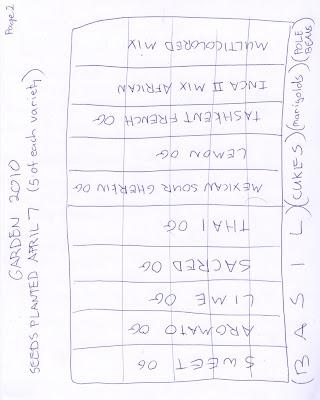 Page 2
GARDEN 2010
SEEDS PLANTED APRIL 7 (5 of each variety)
SWEET OG
AROMATO OG
LIME OG
SACRED OG
THAI OG
MEXICAN SOUR GHERKIN OG
LEMON OG
TASHKENT FRENCH OG
INCA II MIX AFRICAN
MULTICOLORED MIX
(BASIL) (CUKES) (marigolds) (POLE
BEANS)